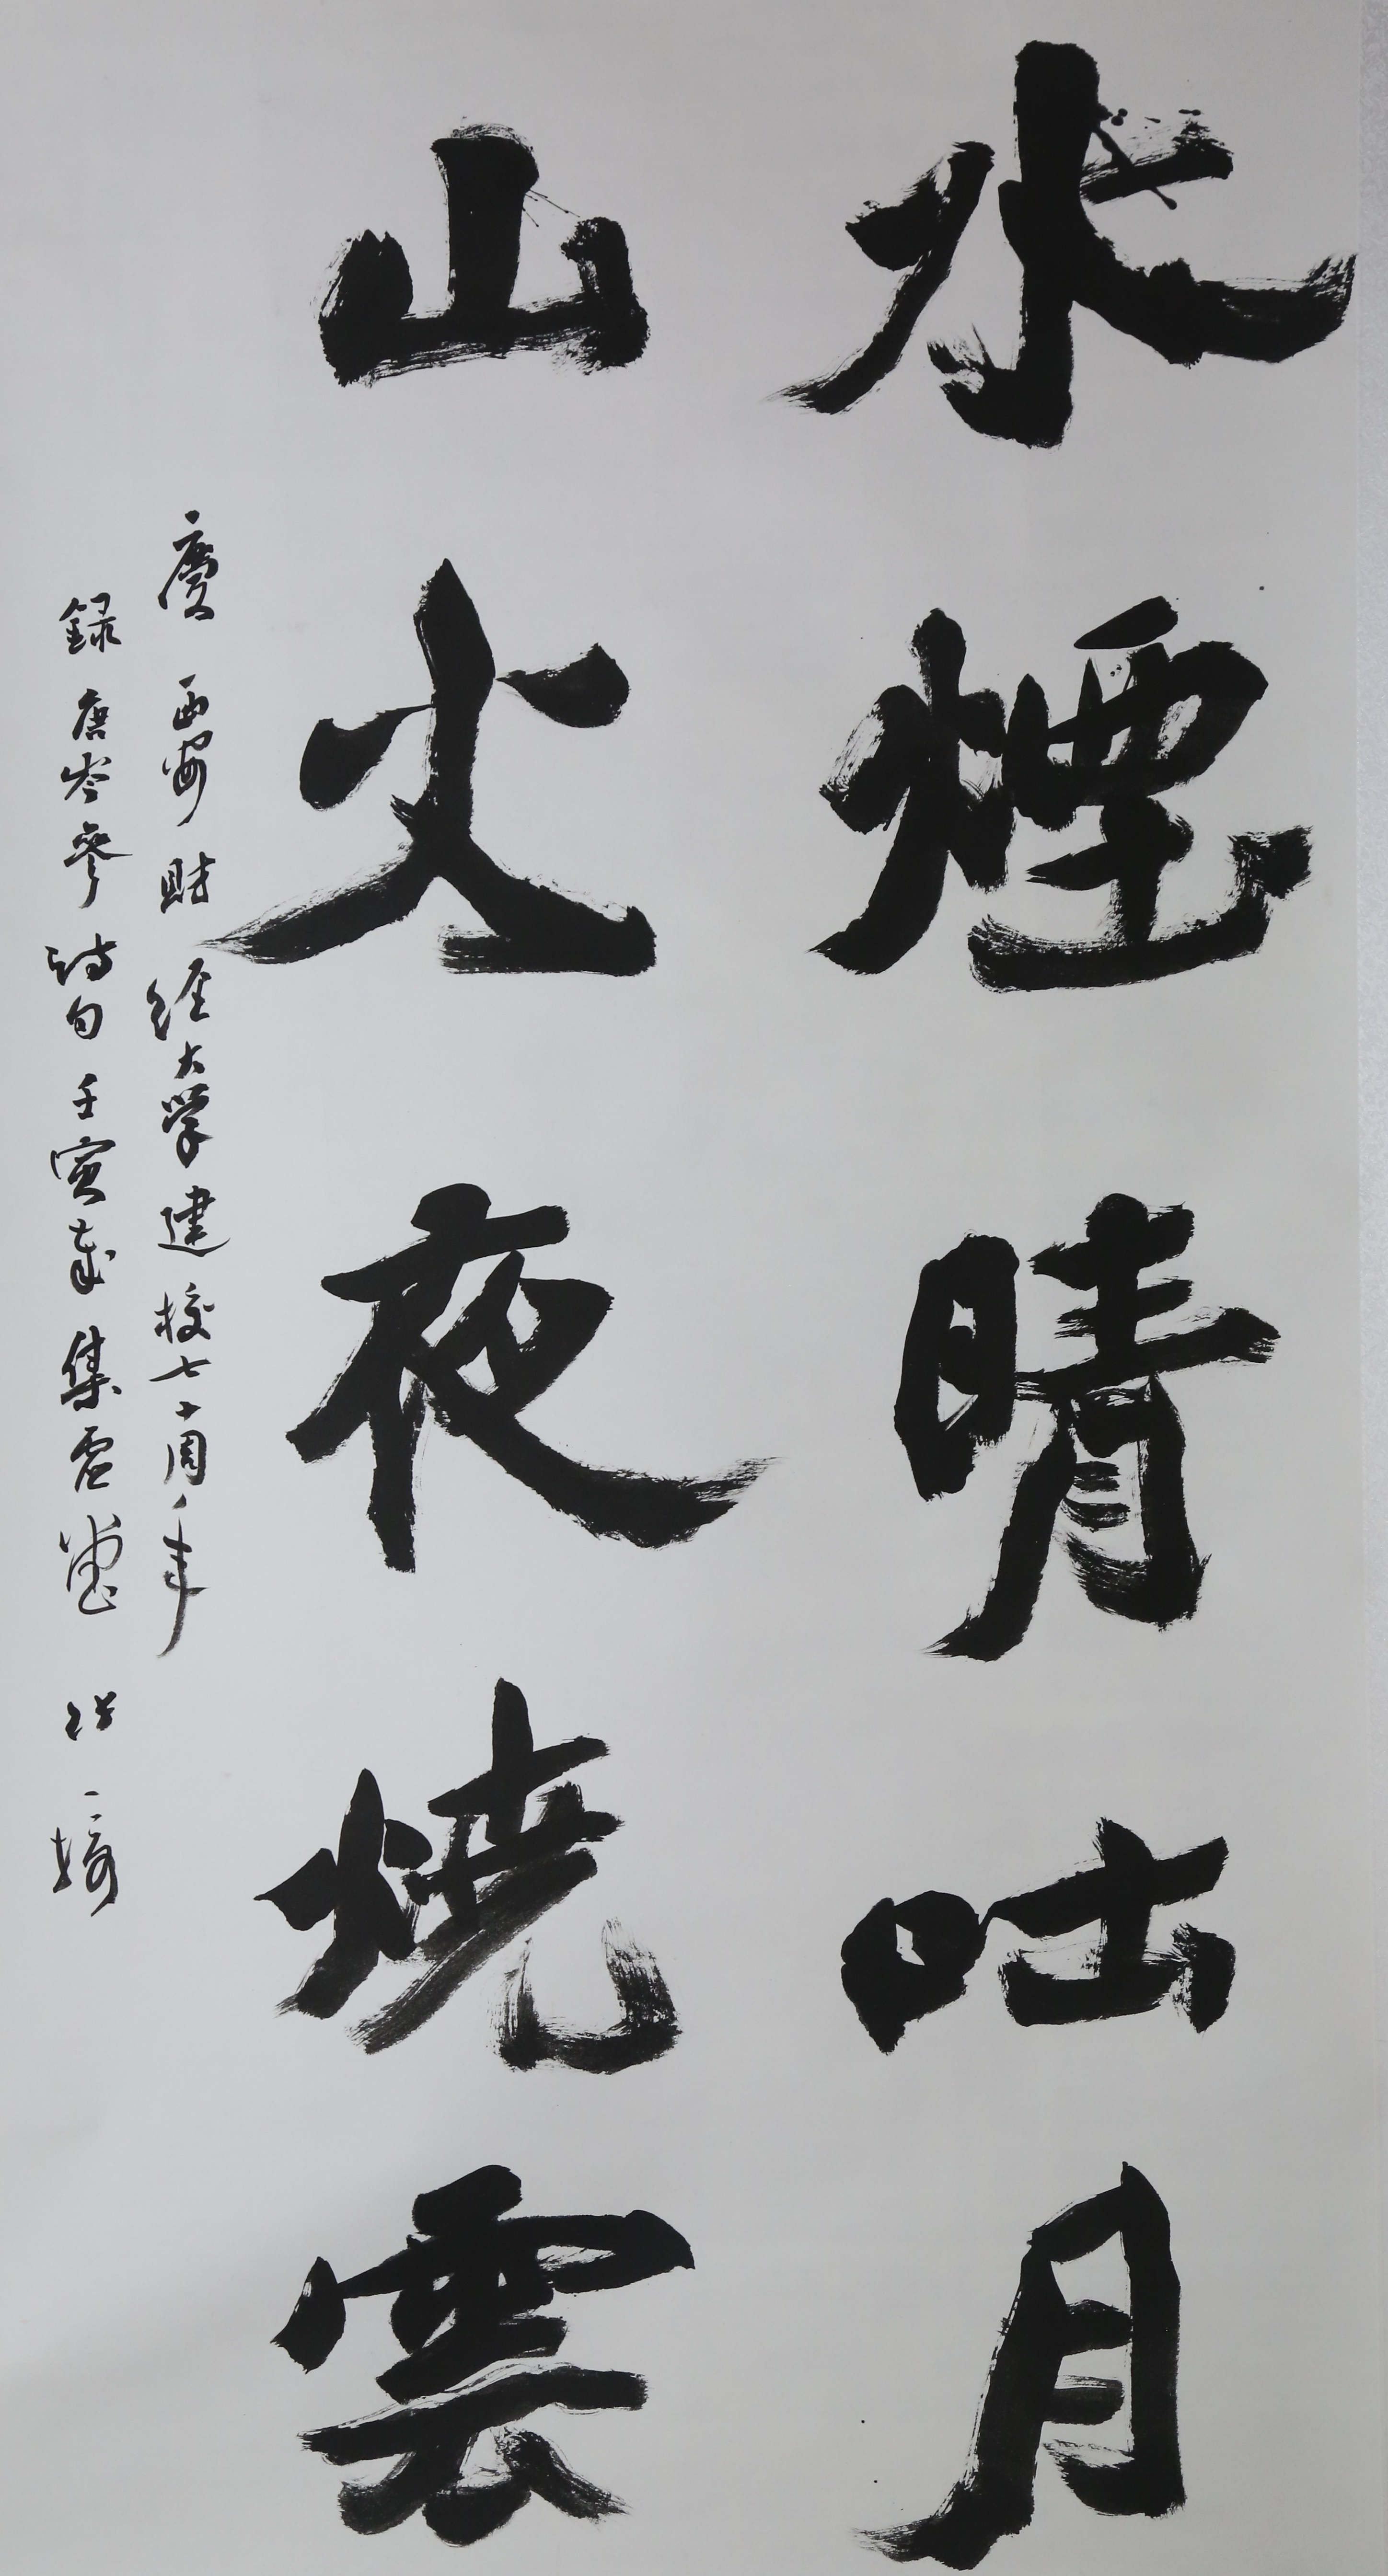 水煙晴吐月
山火夜燒雲
慶西安財經大學建校七十周年
錄唐岑參詩句壬寅年集雲堂